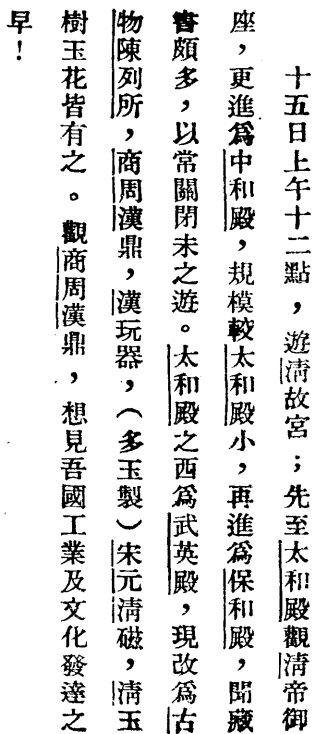 十五日上午十二點，遊淸故宮；先至太和殿觀淸帝御
座，更進爲中和殿，規模較太和殿小，再進爲保和殿，聞藏
書頗多，以常關閉未之遊。太和殿之西爲武英殿，現改爲古
物陳列所，商周漢鼎，漢玩器，（多玉製）宋元淸磁，淸玉
樹玉花皆有之。觀商周漢鼎，想見吾國工業及文化發達之
早！